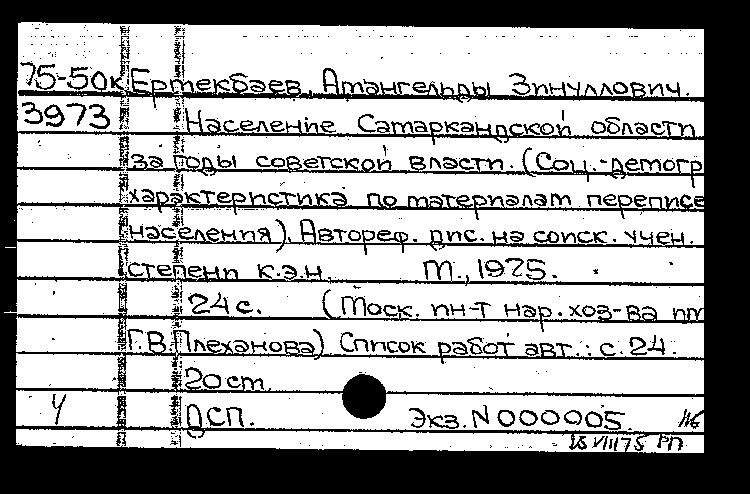 75-50к Ертекбаев, Атангельды Зинуллович.
3973 Население Самаркандской области
за годы советской власти. (Соц.-демогр
характеристика по материалам переписе
населения). Автореф. дис. на соиск. учен.
степени к.э.н. М., 1975.
24 с. (Моск. ин-т нар. хоз-ва им
Г.В.Плеханова) Список работ авт.: с.24.
20 ст.
Ч ДСП. Экз. N 000005.
VIII 75 РП